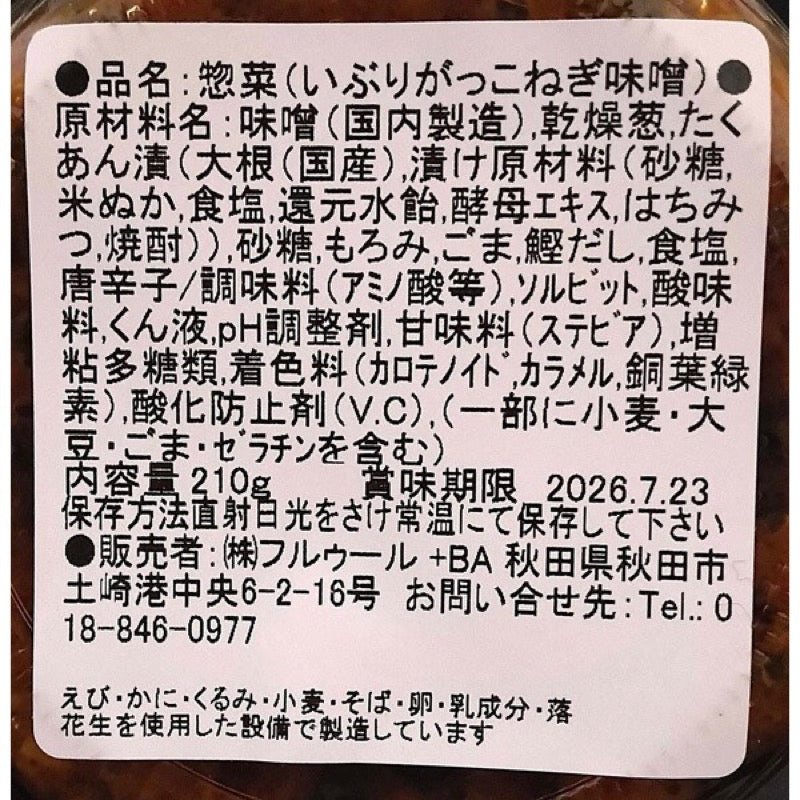 ●品名:惣菜(いぶりがっこねぎ味噌)●
原材料名:味噌(国内製造),乾燥葱,たく
あん漬(大根(国産),漬け原材料(砂糖,
米ぬか,食塩,還元水飴,酵母エキス,はちみ
つ,焼酎)),砂糖,もろみ,ごま,鰹だし,食塩,
唐辛子/調味料(アミノ酸等),ソルビット,酸味
料,くん液,pH調整剤,甘味料(ステビア),増
粘多糖類,着色料(カロテノイド,カラメル,銅葉緑
素),酸化防止剤(V.C),(一部に小麦・大
豆・ごま・ゼラチンを含む)
内容量210g 賞味期限 2026.7.23
保存方法直射日光をさけ常温にて保存して下さい
●販売者:㈱フルゥール +BA 秋田県秋田市
土崎港中央6-2-16号 お問い合せ先:Tel.:0
18-846-0977
えび・かに・くるみ・小麦・そば・卵・乳成分・落
花生を使用した設備で製造しています